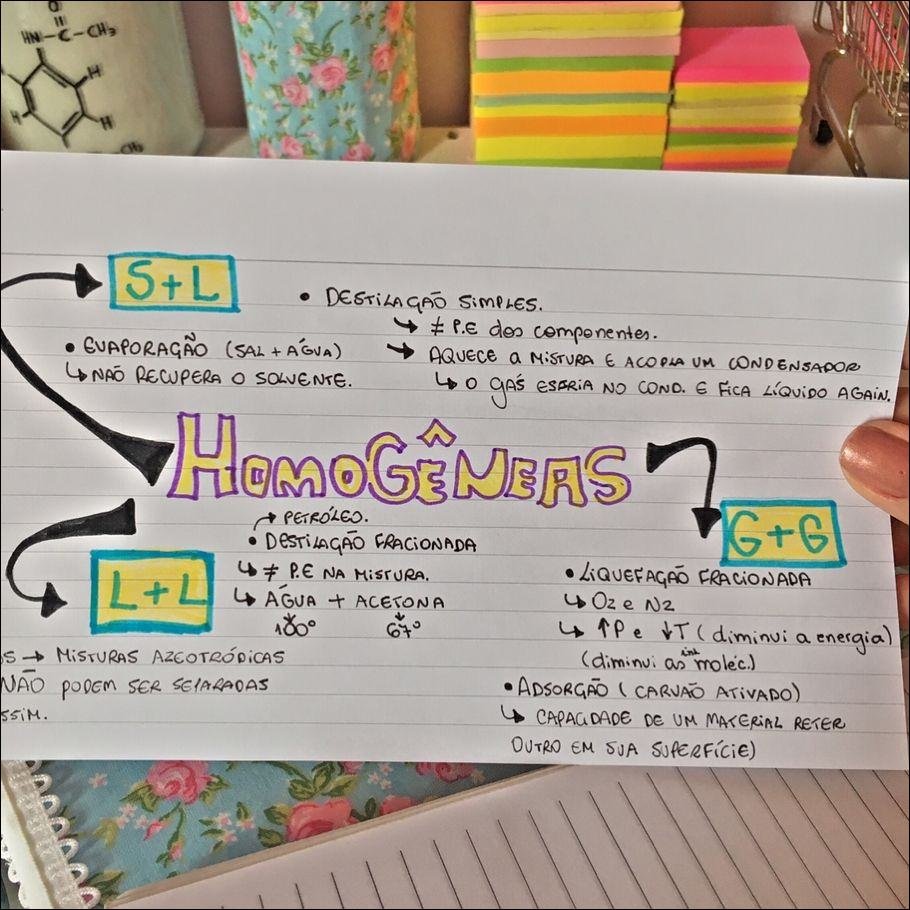 O
HN-C-CH3
H
H
H
CH3
S+L
• DESTILAÇÃO SIMPLES.
↳ ≠ P.E dos componentes.
• EVAPORAÇÃO (SAL + ÁGUA)
→ AQUECE A MISTURA E ACOPLA UM CONDENSADOR
↳ NÃO RECUPERA O SOLVENTE.
↳ O GÁS ESFRIA NO COND. E FICA LÍQUIDO AGAIN.
HOMOGÊNEAS
G+G
→ PETRÓLEO.
• DESTILAÇÃO FRACIONADA
↳ ≠ P.E NA MISTURA.
↳ ÁGUA + ACETONA
100° 67°
L+L
OS → MISTURAS AZEOTRÓDICAS
NÃO PODEM SER SEPARADAS
SSIM.
• LIQUEFAÇÃO FRACIONADA
↳ O2 e N2
↳ ↑P e ↓T (diminui a energia)
(diminui as int moléc.)
• ADSORÇÃO (CARVÃO ATIVADO)
↳ CAPACIDADE DE UM MATERIAL RETER
OUTRO EM SUA SUPERFÍCIE)